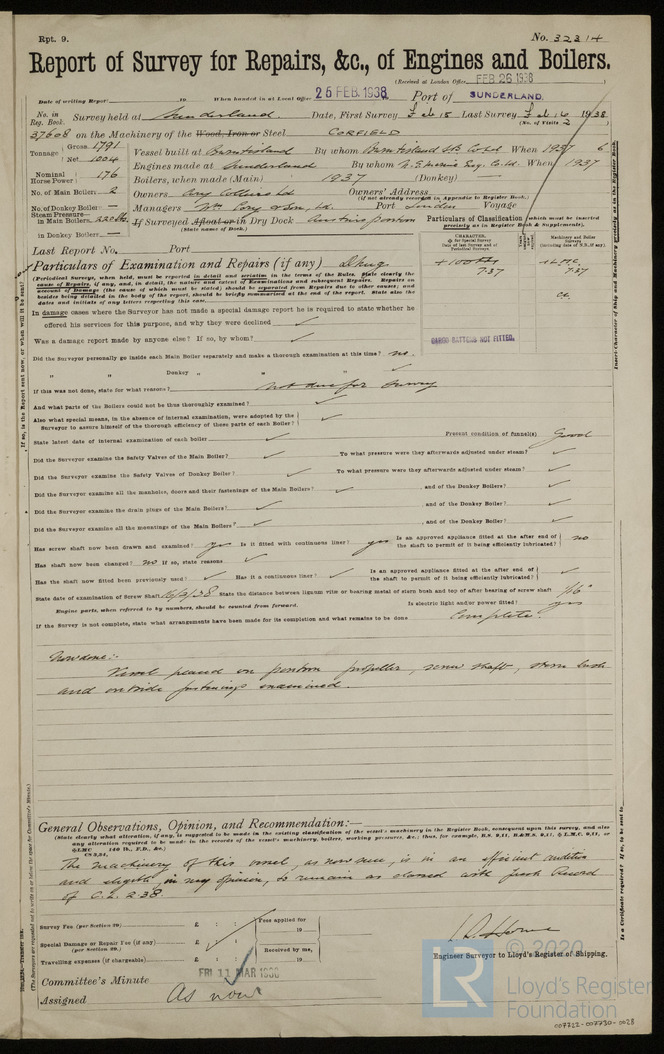 Rpt. 9.
No. 32314
Report of Survey for Repairs, &c., of Engines and Boilers.
(Received at London Office FEB 26 1938)
Date of writing Report to When handed in at Local Office 25 FEB. 1938 Port of SUNDERLAND.
No. in Reg. Book. Survey held at Sunderland. Date, First Survey Feb 15 Last Survey Feb 16 1938
(No. of Visits 2)
37608 on the Machinery of the Wood, Iron or Steel CORFIELD
Tonnage Gross 1791 Net 1004
Vessel built at Burntisland By whom Burntisland SB Co Ld When 1937 6
Engines made at Sunderland By whom N.E. Marine Eng. Co. Ld. When 1937
Nominal Horse Power 176 Boilers, when made (Main) 1937 (Donkey) —
No. of Main Boilers 2 Owners Cory Colliers Ld Owners' Address
(if not already recorded in Appendix to Register Book.)
No. of Donkey Boilers — Managers Wm Cory & Son, Ld. Port London Voyage
Steam Pressure— in Main Boilers 220 lbs If Surveyed Afloat or in Dry Dock
(State name of Dock.)
in Donkey Boilers —
Particulars of Classification (which must be inserted precisely as in Register Book & Supplements).
Last Report No. Port
Particulars of Examination and Repairs (if any) Dkug
CHARACTER.
+100A1
7.37
+LMC
7.37
CL
CARGO BATTENS NOT FITTED.
(Periodical Surveys, when held, must be reported in detail and seriatim in the terms of the Rules. State clearly the
cause of Repairs, if any, and, in detail, the nature and extent of Examinations and subsequent Repairs. Repairs on
account of Damage (the cause of which must be stated) should be separated from Repairs due to other causes; and
besides being detailed in the body of the report, should be briefly summarised at the end of the report. State also the
dates and initials of any letters respecting this case.)
In damage cases where the Surveyor has not made a special damage report he is required to state whether he
offered his services for this purpose, and why they were declined
Was a damage report made by anyone else? If so, by whom?
Did the Surveyor personally go inside each Main Boiler separately and make a thorough examination at this time? no.
" " Donkey " " "
If this was not done, state for what reasons? not due for survey
And what parts of the Boilers could not be thoroughly examined?
Also what special means, in the absence of internal examination, were adopted by the
Surveyor to assure himself of the thorough efficiency of those parts of each Boiler?
State latest date of internal examination of each boiler Present condition of funnel(s) Good
Did the Surveyor examine the Safety Valves of the Main Boiler? To what pressure were they afterwards adjusted under steam?
Did the Surveyor examine the Safety Valves of Donkey Boiler? To what pressure were they afterwards adjusted under steam?
Did the Surveyor examine all the manholes, doors and their fastenings of the Main Boilers? , and of the Donkey Boiler?
Did the Surveyor examine the drain plugs of the Main Boilers? , and of the Donkey Boiler?
Did the Surveyor examine all the mountings of the Main Boilers? , and of the Donkey Boiler?
Has screw shaft now been drawn and examined? yes Is it fitted with continuous liner? yes Is an approved appliance fitted at the after end of the shaft to permit of it being efficiently lubricated? no
Has shaft now been changed? no If so, state reasons
Has the shaft now fitted been previously used? Has it a continuous liner? Is an approved appliance fitted at the after end of the shaft to permit of it being efficiently lubricated?
State date of examination of Screw Shaft 16/2/38 State the distance between lignum vitæ or bearing metal of stern bush and top of after bearing of screw shaft 1/16"
Engine parts, when referred to by numbers, should be counted from forward. Is electric light and/or power fitted? yes
If the Survey is not complete, state what arrangements have been made for its completion and what remains to be done Complete.
Now done:-
Vessel placed on pontoon propeller, screw shaft, stern bush
and outside fastenings examined.
General Observations, Opinion, and Recommendation:—
(State clearly what alteration, if any, is suggested to be made in the existing classification of the vessel's machinery in the Register Book, consequent upon this survey, and also
any alteration required to be made in the records of the vessel's machinery, boilers, working pressures, &c.; thus, for example, B.S. 9,11, B&M.S. 9,11, L.M.C. 9,11, or
L.M.C 140 lb., F.D., &c.)
The machinery of this vessel, as now seen, is in an efficient condition
and eligible, in my opinion, to remain as classed with fresh Record
of C.L. 2.38.
Survey Fee (per Section 29) £ : : Fees applied for
19
Special Damage or Repair Fee (if any) £ : :
(per Section 29.)
Received by me,
Travelling expenses (if chargeable) £ : : 19
Engineer Surveyor to Lloyd's Register of Shipping.
Committee's Minute FRI 11 MAR 1938
Assigned As now
© 2020
LR
Lloyd's Register
Foundation
007722-007730-0028